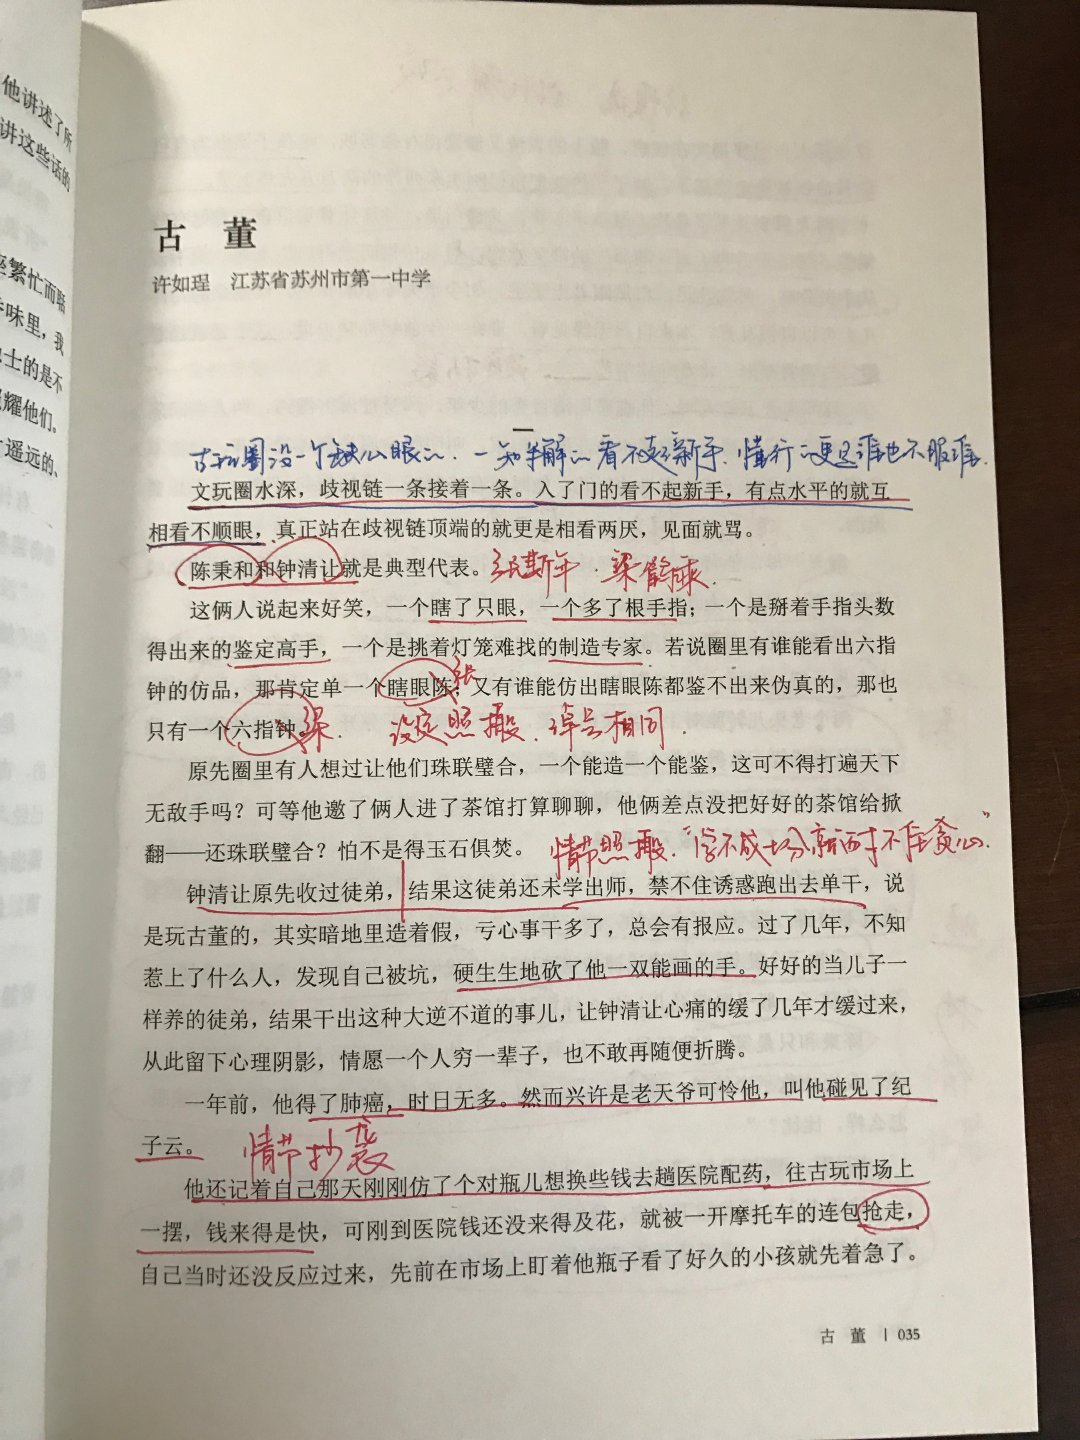 他讲述了所
讲这些话的
繁忙而
味里，我
士的是不
耀他们。
遥远的、
古 董
许如珵 江苏省苏州市第一中学
一
古玩圈没一个缺心眼的，一知半解的看不起新手，懂行的更是谁也不服谁.
文玩圈水深，歧视链一条接着一条。入了门的看不起新手，有点水平的就互
相看不顺眼，真正站在歧视链顶端的就更是相看两厌，见面就骂。
陈秉和和钟清让就是典型代表。 张斯年. 梁鹤乘.
这俩人说起来好笑，一个瞎了只眼，一个多了根手指；一个是掰着手指头数
得出来的鉴定高手，一个是挑着灯笼难找的制造专家。若说圈里有谁能看出六指
钟的仿品，那肯定单一个瞎眼陈；又有谁能仿出瞎眼陈都鉴不出来伪真的，那也
张
只有一个六指钟。 梁. 设定照搬. 绰号相同.
原先圈里有人想过让他们珠联璧合，一个能造一个能鉴，这可不得打遍天下
无敌手吗？可等他邀了俩人进了茶馆打算聊聊，他俩差点没把好好的茶馆给掀
翻——还珠联璧合？怕不是得玉石俱焚。 情节照搬.“学不成七分就耐不住贪心”.
钟清让原先收过徒弟，结果这徒弟还未学出师，禁不住诱惑跑出去单干，说
是玩古董的，其实暗地里造着假，亏心事干多了，总会有报应。过了几年，不知
惹上了什么人，发现自己被坑，硬生生地砍了他一双能画的手。好好的当儿子一
样养的徒弟，结果干出这种大逆不道的事儿，让钟清让心痛的缓了几年才缓过来，
从此留下心理阴影，情愿一个人穷一辈子，也不敢再随便折腾。
一年前，他得了肺癌，时日无多。然而兴许是老天爷可怜他，叫他碰见了纪
子云。 情节抄袭
他还记着自己那天刚刚仿了个对瓶儿想换些钱去趟医院配药，往古玩市场上
一摆，钱来得是快，可刚到医院钱还没来得及花，就被一开摩托车的连包抢走，
自己当时还没反应过来，先前在市场上盯着他瓶子看了好久的小孩就先着急了。
古 董 | 035